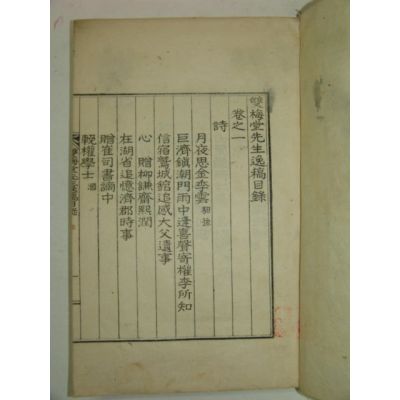 雙梅堂先生逸稿目錄
卷之一
詩
月夜思金李雲
巨濟鎭潮門雨中逢喜聲寄權李所知
信宿鷲城館追感大父遺事
心 贈柳謙齋熙潤
在湖省追憶濟郡時事
贈崔司書謫中
輓權學士